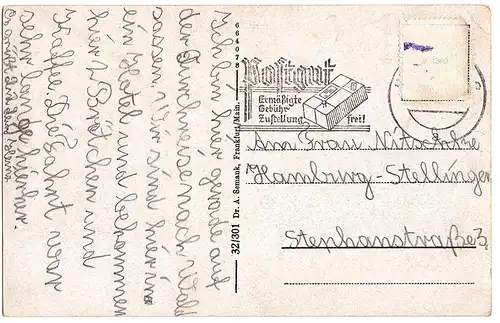 Ich bin hier gerade auf
der Durchreise nach Wald
sassen. Wir sind hier in
ein Hotel und bekommen
hier 2 Brötchen und
Kaffee. Die Fahrt war
sehr lange hierher.
664078
32/301 Dr. A. Semank, Frankfurt/Main.
Postgut
Ermäßigte
Gebühr
Zustellung frei!
An Frau Nitschke
Hamburg-Stellingen
Stephanstraße 3